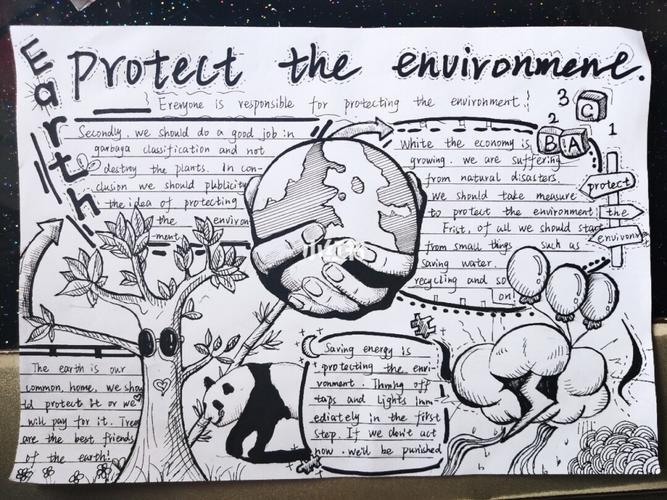 Earth
Protect the environmene.
Ereryone is responsible for protecting the environment!
3
C
2
B A
1
White the economy is
growing. we are suffering
from natural disasters.
we should take measure
to protect the environment!
Frist, of all we should start
from small things such as
saving water.
recycling and so
on!
protect
the
environment
Secondly, we should do a good job in
garbaga classification and not
destroy the plants. In con-
clusion we should publicity
the idea of protecting
the environ
-ment.
小红书
The earth is our
common, home, we shou
ld protect it or we
will pay for it. Trees
are the best friends
of the earth!
Saving energy is
protecting the envi-
vonment. Thrning off
taps and lights imm
ediately in the first
step. If we don't act
now. we'll be punished